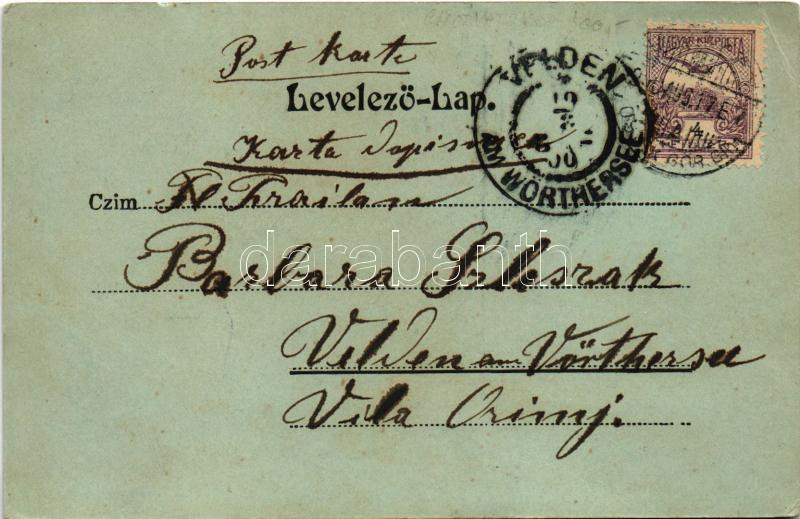 Post karte
Levelező-Lap.
Karta dopisnica
Czim
Frailan
Barbara
Velden am Vörthersee
Vila
VELDEN
AM WÖRTHERSEE
MAGYAR KIR. POSTA
darabanth